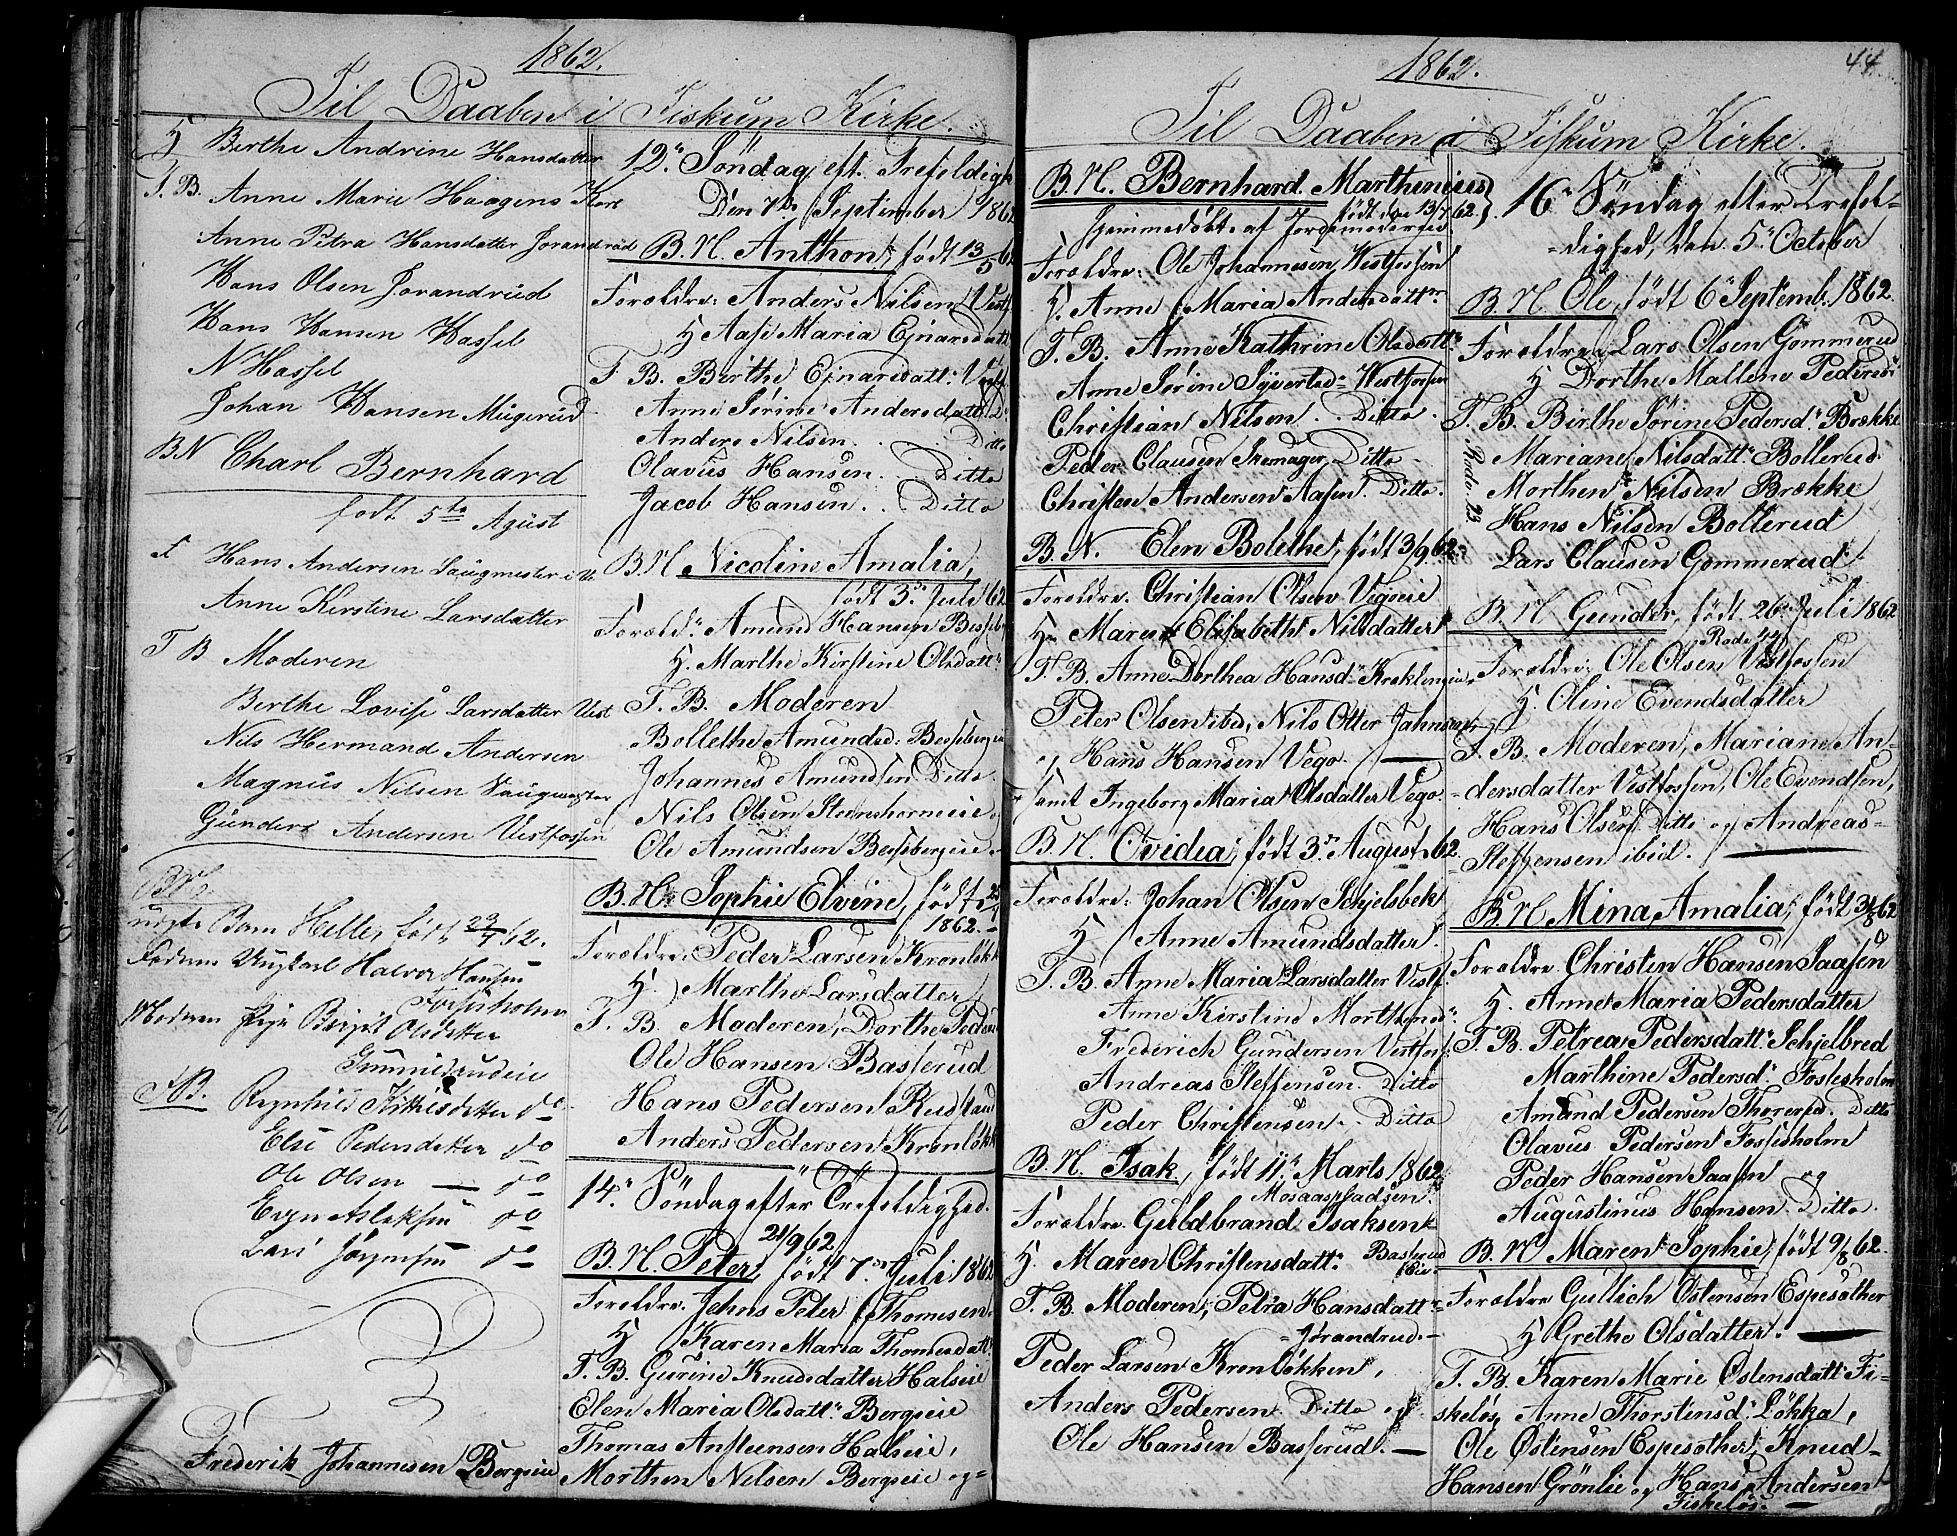 1862.
Til Daaben i Fiskum Kirke.
H Berthe Andrine Hansdatter
F. B. Anne Marie Haagens
Anne Petra Hansdatter Jorandrud
Hans Olsen Jorandrud
Hans Hansen Hassel
N Hassel
Johan Hansen Mügerud
BN Charl Bernhard
født 5te Agüst
F Hans Andersen Saügmester i V
Anne Kirstine Larsdatter
F B Moderen
Berthe Lovise Larsdatter Vest
Nils Hermand Andersen
Magnus Nilsen Saugmester
Günder Andersen Vestfossen
BN
uægte Barn Helle, født 23/7 62.
Faderen Ungkarl Halvor Hansen
Fossesholm
Moderen Pige Birgit Olsdatter
FB. Ragnhild do
Else Pedersdatter do
Ole Olsen — do
Even Aslaksen do
Lars Jørgensen do
Frederik Johannesen Bergseie
12te Søndag eft. Trefoldigh
Den 7de September 1862
B. N. Anthon, født 13/5 62
Forældre: Anders Nilsen Vestf
H Aase Maria Ejnarsdatt
F B. Birthe Ejnarsdatt: Vestf.
Anne Sørine Andersdatt Do
Anders Nilsen . . Ditto
Olavus Hansen . Ditto
Jacob Hansen . . Ditto
B N Nicoline Amalia,
født 3de Juli 62
Foræld: Amund Hansen Besseb
H. Marthe Kirstine Olsdatt:
F. B. Moderen
Bollethe Amundsd: Bessebergeie
Johannes Amundsen Ditto.
Nils Olsen Steenshorneie og
Ole Amundsen Bessebergeie.
B. N. Sophie Elvine, født 25/7
1862.
Forældre: Peder Larsen Kronløkk
H. Marthe Larsdatter
F. B. Moderen, Dorthe Peders
Ole Hansen Basserud
Hans Pedersen Rudstad
Anders Pedersen Kronløkk
14de Søndag efter Trefoldighed.
21/9 62
B. N. Peter, født 7de Juli 1862
Forældre: Jehns Peter Thomesen
H Karen Maria Thomesdatt
F. B. Gurine Knudsdatter Halseie
Elen Maria Olsdatt: Bergseie
Thomas Ansteensen Halseie,
Morthen Nilsen Bergseie og
1862.
44
Til Daaben i Fiskum Kirke.
B. N. Bernhard Marthenius
født den 13/7 62.
hjemmedøbt af Jordemoderen
Forældre: Ole Johannesen Vestfossen
H. Anne Maria Andersdatter
F. B. Anne Kathrine Olsdatt:
Anne Sørine Syvertsd: Vestfossen
Christian Nilsen . . Ditto.
Peder Clausen Skomager, Ditto
Christen Andersen Aasen. Ditto.
B. N. Elen Bolethe, født 3/9 62.
Forældre: Christian Olsen Vegoeie
H. Maren Elisabeth Nilsdatter
F. B. Anne Dorthea Hansd: Kreklingeie,
Peter Olsen ibid, Nils Otter Jahnsen
og Hans Hansen Vego. —
samt Ingeborg Maria Olsdatter Vego.
B. N. Ovidia, født 3de August 62.
Forældre: Johan Olsen Schjelsbek
H Anne Amundsdatter.
F. B. Anne Maria Larsdatter Vestf.
Anne Kirstine Morthensd:
Frederich Gundersen Vestfoss.
Andreas Steffensen. Ditto
Peder Christensen. . Ditto
B. N. Isak, født 11te Marts 1862
Forældre. Guldbrand Isaksen
H. Maren Christensdatt: Basserud
Eie.
F. B. Moderen, Petra Hansdatt:
Jørandrud.
Peder Larsen Kronløkken,
Anders Pedersen Ditto og
Ole Hansen Basserud. —
16de Søndag efter Trefol-
dighed, den 5te October
B. N. Ole, født 6te Septemb. 1862.
Forældre: Lars Olsen Gommerud
H Dorthe Mallene Pedersd
F. B. Birthe Sørine Pedersd: Brække
Mariane Nilsdatt: Bollerud.
Morthen Nilsen Brække
Hans Nilsen Bollerud
Lars Clausen Gommerud
Rode. 23.
B. N. Gunder, født 26de Juli 1862
Rode 44
Forældre: Ole Olsen Vestfossen
H. Oline Evendsdatter
F. B. Moderen, Mariane An-
dersdatter Vestfossen, Ole Evendsen,
Hans Olsen Ditto og Andreas
Steffensen ibid. —
B. N Mina Amalia, født 31/8 62
Forældre Christen Hansen Saasen
H. Anne Maria Pedersdatter
F. B. Petrea Pedersdatt: Schjelbred
Marthine Pedersd: Fossesholm
Amund Pedersen Thorerud. Ditto
Olavus Pedersen Fossesholm
Peder Hansen Saasen og
Augustinus Hansen. Ditto.
B. N Maren Sophie, født 9/8 62.
Forældre Gullich Østensen Espesæther
H Grethe Olsdatter. —
F. B. Karen Marie Østensdatt: Fi-
skeløs, Anne Thorstensd: Løkka,
Ole Østensen Espesæther, Knud
Hansen Grønlie og Hans Andersen
Fiskeløs. —